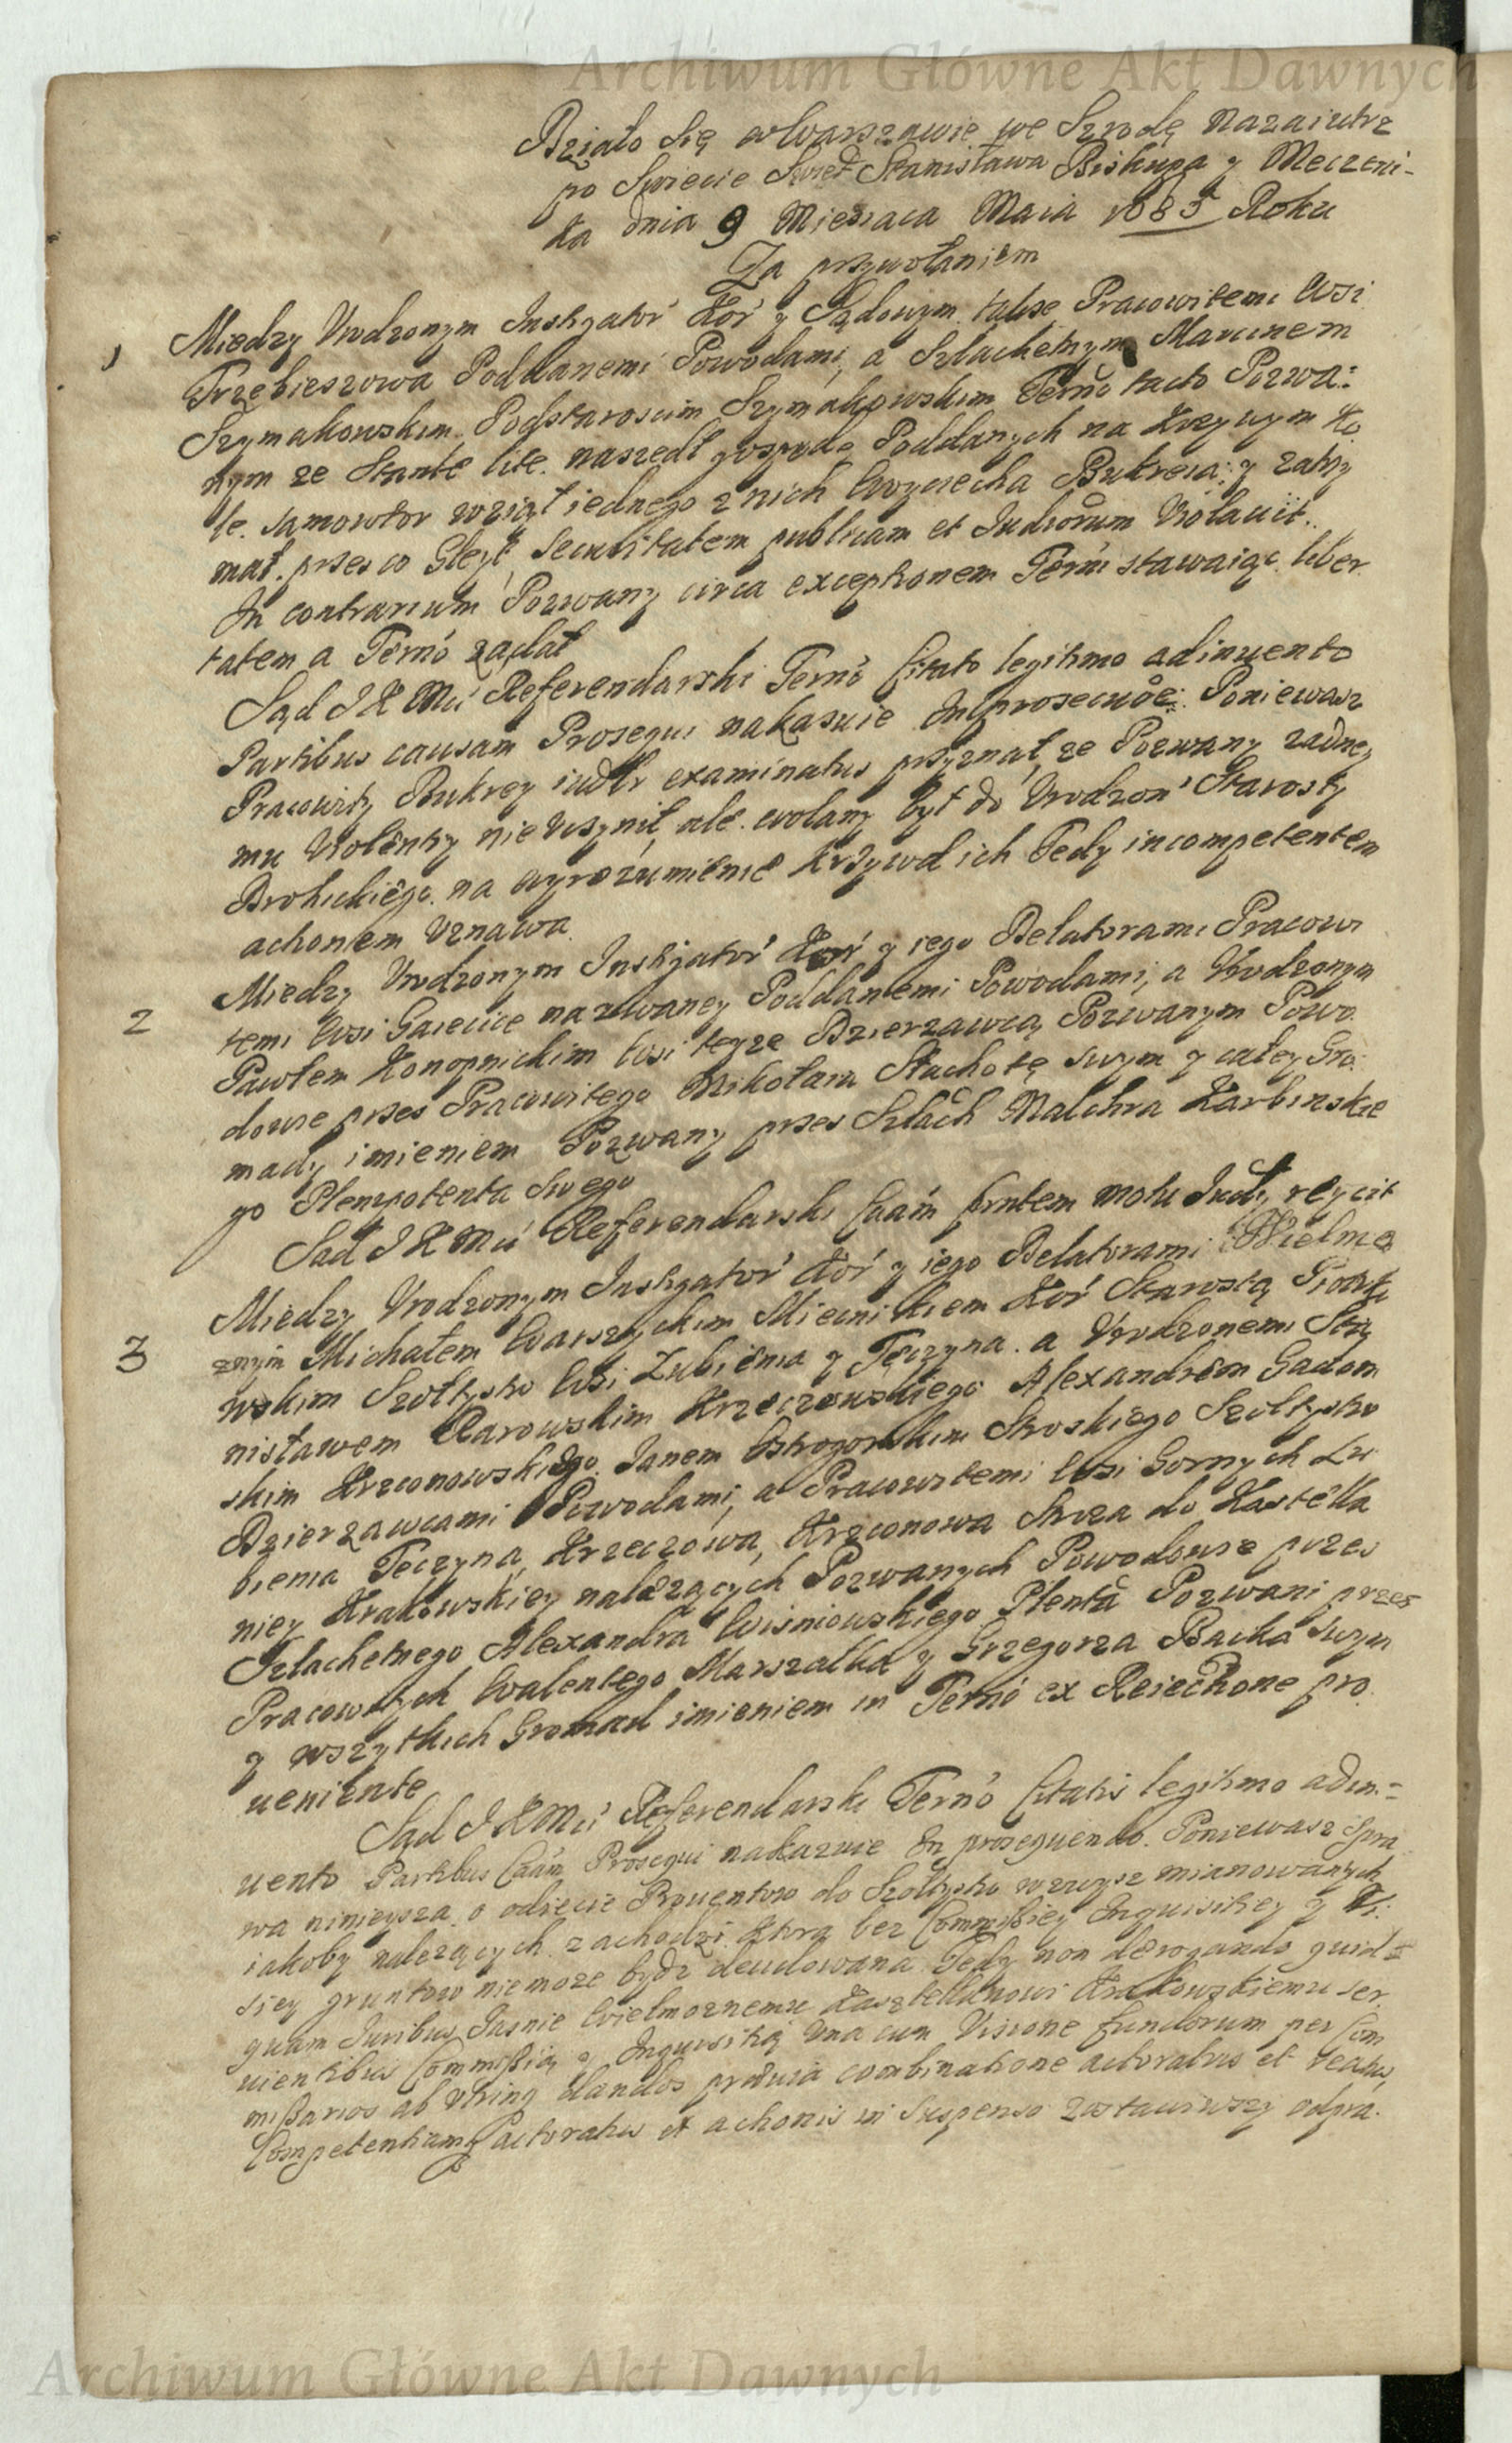 Archiwum Główne Akt Dawnych
Działo się w Warszawie we Szrodę nazaiutrz
po Swiecie Swięt Stanisława Biskupa y Meczeni-
ka dnia 9 Miesiaca Maia 1685 Roku
Za przywołaniem
1 Miedzy Vrodzonym Instigator Kor y Sądowym takze Pracowitemi Wsi
Trzebieszowa Poddanemi Powodami, a Szlachetnym Marcinem
Szymakowskim Podstaroscim Szymakowskim Termo tacto Pozwa:
nym ze Stante lite naszedł gospodę Poddanych na Krzywym Ko
le samowtor wziął iednego z nich Woyciecha Bukreia y zatrzy
mał. przes co Gleyt, Securitatem publicam et Iudiorum Violavit.
In contrarium Pozwany circa exceptionem Termi stawaiąc liber
tatem a Termo zadał
Sąd I K Mci Referendarski Termo Citato legitimo adinuento
Partibus causam Prosequi nakazuie In prosecuoe: Poniewasz
Pracowity Bukrey iudlr examinatus przyznał, ze Pozwany zadney
mu Violentiy nie Vczynił, ale wolany był do Vrodzon Starosty
Brolickiego na wyrozumienie Krzywd ich Tedy incompetentem
actionem Vznawa
2 Miedzy Vrodzonym Instigator Kor y iego Delatorami Pracowi
temi Wsi Gaiecice nazwaney Poddanemi Powodami, a Vrodzonym
Pawłem Konopnickim Wsi teyze Dzierzawcą Pozwanym Powo
dowie przes Pracowitego Mikołaia Stachotę swym y całey Gro:
mady imieniem Pozwany przes Szlach Malchra Karbinskie
go Plenipotenta Swego
Sąd I K Mci Referendarski Caam prntem motu Iudy reycit
3 Miedzy Vrodzonym Instigator Kor y iego Delatorami Wielmo
znym Michałem Warszyckim Miecnikiem Kor Starostą Piotrko
wskim Szołtystw Wsi Lubienia y Tęczyna a Vrodzonemi Sta
nisławem Parowskim Krzeczowskiego Alexandrem Gadom
skim Krzconowskiego Ianem Ostrogorskim Stroskiego Szoltystw
Dzierzawcami Powodami, a Pracowitemi Wsi Gornych Lu
bienia Teczyna, Krzeczowa, Krzconowa Stroza do Kastella
niey Krakowskiey nalezących Pozwanych Powodowie przes
Szlachetnego Alexandra Wisniowskiego Plenta Pozwani przes
Pracowitych Walentego Marszałka y Grzegorza Backa swym
y wszytkich Gromad imieniem in Termo ex Reiectione pro
ueniente
Sąd I K Mci Referendarski Termo Citatis legitimo adin=
uento Partibus Caam Prosequi nakazuie In prosequendo. Poniewasz Spra
wa ninieysza o odiecie Prouentow do Szołtystw wzwysz mianowanych
iakoby nalezących zachodzi. Ktora bez Commissiey Inquisitiey y Wi:
siey gruntow niemoze bydz deudowana Tedy non derogando quid=
quam Iuribus Iasnie Wielmoznemu Kasztellanowi Krakowskiemu ser
uientibus Commissią y Inquisitią Una cum Visione fundorum per Com
missarios ab Utrinq dandos praeuia combinatione actoratus et reatus,
Competentiamq actoratus et actionis in suspenso zostawiwszy odpra.
Archiwum Główne Akt Dawnych